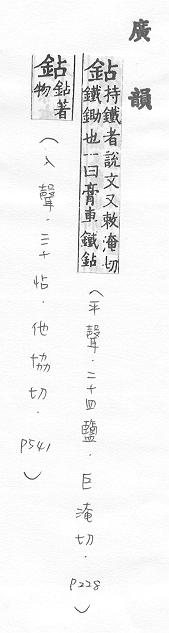 廣韻
鉆持鐵者說文又敕淹切
鐵鉚也一曰膏車鐵鉆
（平聲．二十四鹽．巨淹切．P228）
鉆鉆著
物
（入聲．三十帖．他協切．P541）